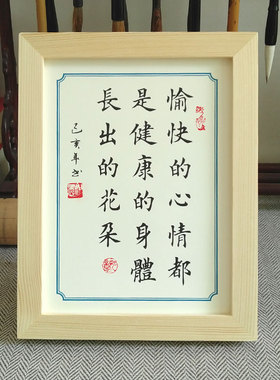 愉快的心情都
是健康的身體
長出的花朵
己亥年書